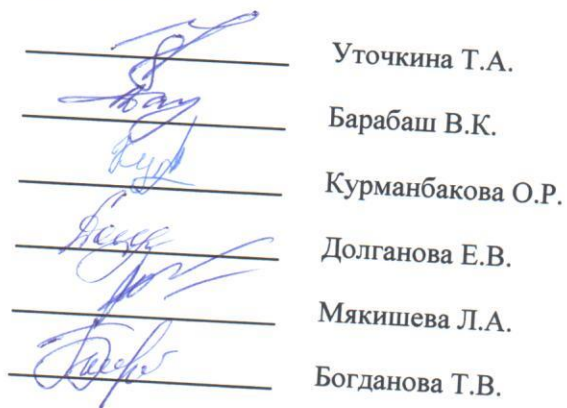 Уточкина Т.А.
Барабаш В.К.
Курманбакова О.Р.
Долганова Е.В.
Мякишева Л.А.
Богданова Т.В.